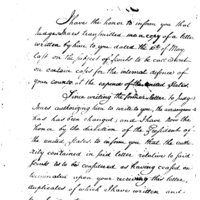 I have the honor to inform you that
Judge Innes transmitted me a copy of a letter
written by him to you dated the of May
last on the subject of Scouts to be call
on certain cases for the internal defence of
your county at the expence of the United States
Since writing the letter to Judge
Innes authorizing him to write to you, the arrangement
has been changed; and I have now the
honor by the direction of the President of
the United States to inform you that the auth-
ority contained in said letter relative to said
Scouts to be considered as having ceased and
terminated upon your receiving this letter,
duplicates of which I have written and